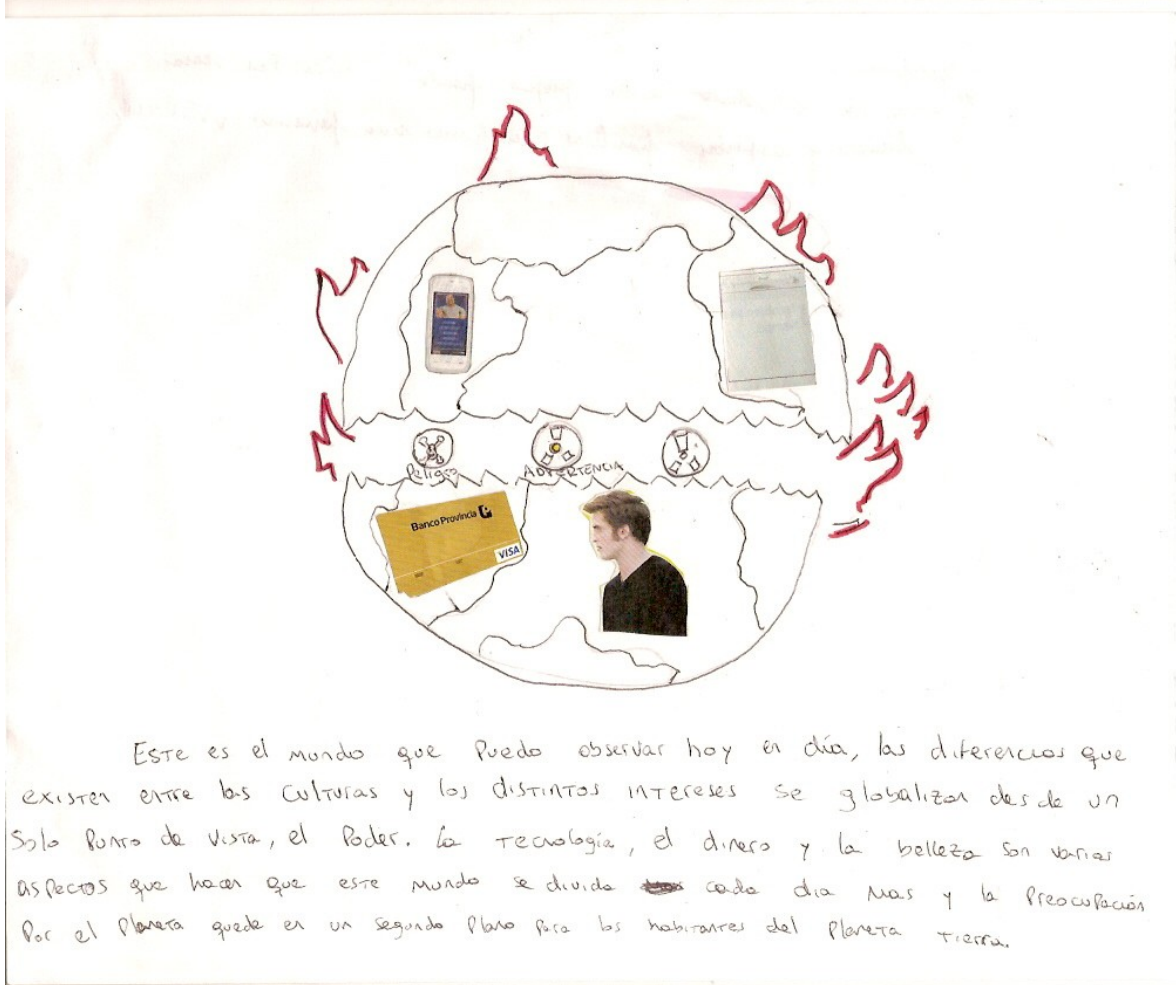 Peligro
ADVERTENCIA
Banco Provincia
VISA
Este es el mundo que puedo observar hoy en día, las diferencias que
existen entre las culturas y los distintos intereses se globalizan desde un
solo punto de vista, el Poder. La tecnología, el dinero y la belleza son varios
aspectos que hacen que este mundo se divida cada dia mas y la preocupación
por el planeta quede en un segundo plano para los habitantes del planeta tierra.